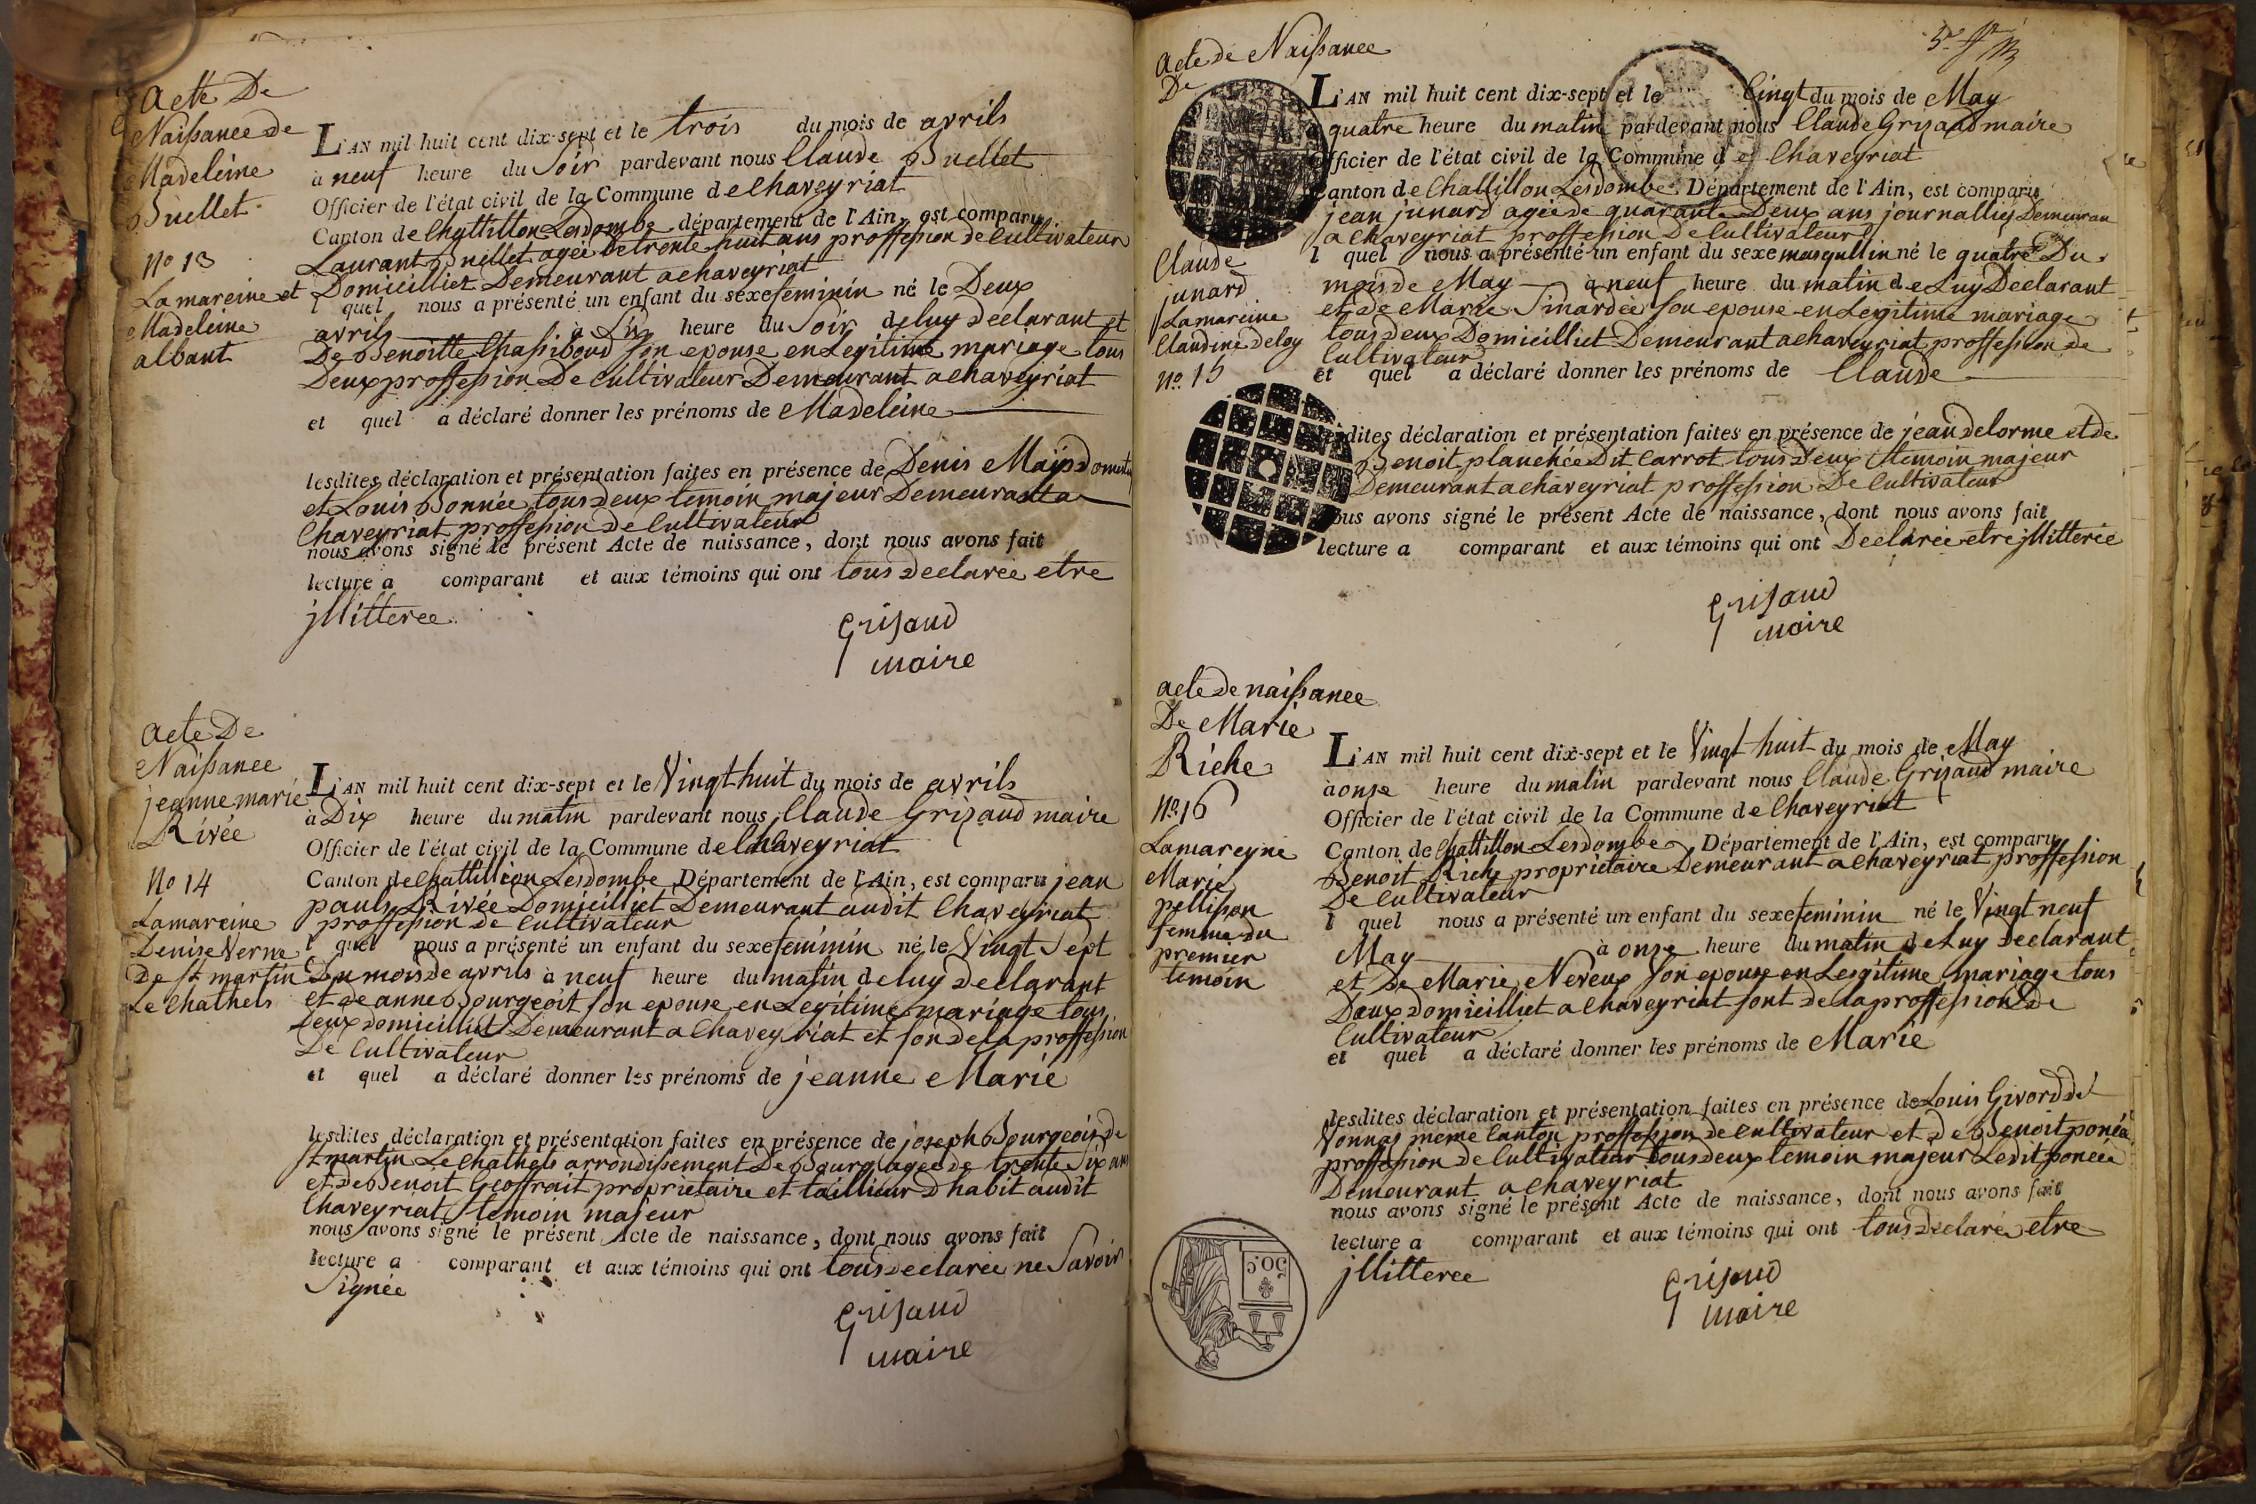 Acte De
Naissance de
Madeleine
Buellet
No 13
La mareine et
Madeleine
albant
L'AN mil huit cent dix-sept et le trois du mois de avrils
à neuf heure du Soir pardevant nous Claude Buellet
Officier de l'état civil de la Commune de Chaveyriat
Canton de Chattillon Lesdombe département de l'Ain, est comparu
Laurant Buellet ageé de trente huit ans proffession de Cultivateur
Domicilliet Demeurant a chaveyriat
l quel nous a présenté un enfant du sexe feminin né le Deux
avrils à Six heure du Soir de luy Declarant et
De Benoitte Chassiboud Son epouse en Legitime mariage tous
Deux proffession De Cultivateur Demeurant a chaveyriat
et quel a déclaré donner les prénoms de Madeleine
lesdites déclaration et présentation faites en présence de Denis
et Louis Bonnée tous deux temoin majeur Demeurant a
Chaveyriat proffession de Cultivateur
nous avons signé le présent Acte de naissance, dont nous avons fait
lecture a comparant et aux témoins qui ont tous declarée etre
jllitterée
Grisaud
maire
Acte De
Naissance
jeanne marie
Rivée
No 14
La mareine
Denise Verne
De St martin
Le Chathels
L'AN mil huit cent dix-sept et le Vingt huit du mois de avrils
à Dix heure du matin pardevant nous Claude Grizaud maire
Officier de l'état civil de la Commune de Chaveyriat
Canton de Chattillion Lesdombe Département de l'Ain, est comparu jean
pauls Rivée Domicilliet Demeurant audit Chaveyriat
proffession de Cultivateur
l quel nous a présenté un enfant du sexe feminin né le Vingt Sept
Du mois de avrils à neuf heure du matin de luy Declarant
et de anne Bourgeoit son epouse en Legitime mariage tous
Deux domicilliet Demeurant a Chaveyriat et son de la proffession
De Cultivateur
et quel a déclaré donner les prénoms de jeanne Marie
lesdites déclaration et présentation faites en présence de joseph Bourgeois de
St martin Le Chathels arrondissement De Bourg ageé de trente Six ans
et de Benoit Geoffrait proprietaire et taillieur d'habit audit
Chaveyriat temoin majeur
nous avons signé le présent Acte de naissance, dont nous avons fait
lecture a comparant et aux témoins qui ont tous declarée ne Savoir
Signée
Grisaud
maire
Acte de Naissance
De
Claude
junard
La mareine
Claudine deloy
No 15
L'AN mil huit cent dix-sept et le Cinqt du mois de May
à quatre heure du matin pardevant nous Claude Grizaud maire
Officier de l'état civil de la Commune de Chaveyriat
Canton de Chattillon Lesdombe Département de l'Ain, est comparu
jean junard ageé de quarante Deux ans journallies Demeuran
a Chaveyriat proffession De Cultivateur
l quel nous a présenté un enfant du sexe masqullin né le quatre Du
mois de May à neuf heure du matin de Luy Declarant
et de Marie Sinardée Son epouse en Legitime mariage
tous deux Domicilliet Demeurant a chaveyriat proffession de
Cultivateur
et quel a déclaré donner les prénoms de Claude
lesdites déclaration et présentation faites en présence de jean delorme et de
Benoit planchée Dit Carrot tous Deux temoin majeur
Demeurant a chaveyriat proffession De Cultivateur
nous avons signé le présent Acte de naissance, dont nous avons fait
lecture a comparant et aux témoins qui ont Declarée etre jllitterée
Grisaud
maire
acte de naissance
De Marie
Riche
No 16
La mareyne
Marie
pellison
femme du
premier
temoin
L'AN mil huit cent dix-sept et le Vingt huit du mois de May
à onze heure du matin pardevant nous Claude Grizaud maire
Officier de l'état civil de la Commune de Chaveyriat
Canton de Chattillon Lesdombe Département de l'Ain, est comparu
Benoit Riche proprietaire Demeurant a chaveyriat proffession
De Cultivateur
l quel nous a présenté un enfant du sexe feminin né le Vingt neuf
May à onze heure du matin de Luy Declarant
et De Marie Neveux Son epouse en Lesgitime mariage tous
Deux domicilliet a chaveyriat sont de la proffession De
Cultivateur
et quel a déclaré donner les prénoms de Marie
lesdites déclaration et présentation faites en présence de Louis Givord de
Vonnas meme Canton proffession de Cultivateur et de Benoit
proffession de Cultivateur tous deux temoin majeur Ledit
Demeurant a chaveyriat
nous avons signé le présent Acte de naissance, dont nous avons fait
lecture a comparant et aux témoins qui ont tous declaré etre
jllitterée
Grisaud
maire
50 c.